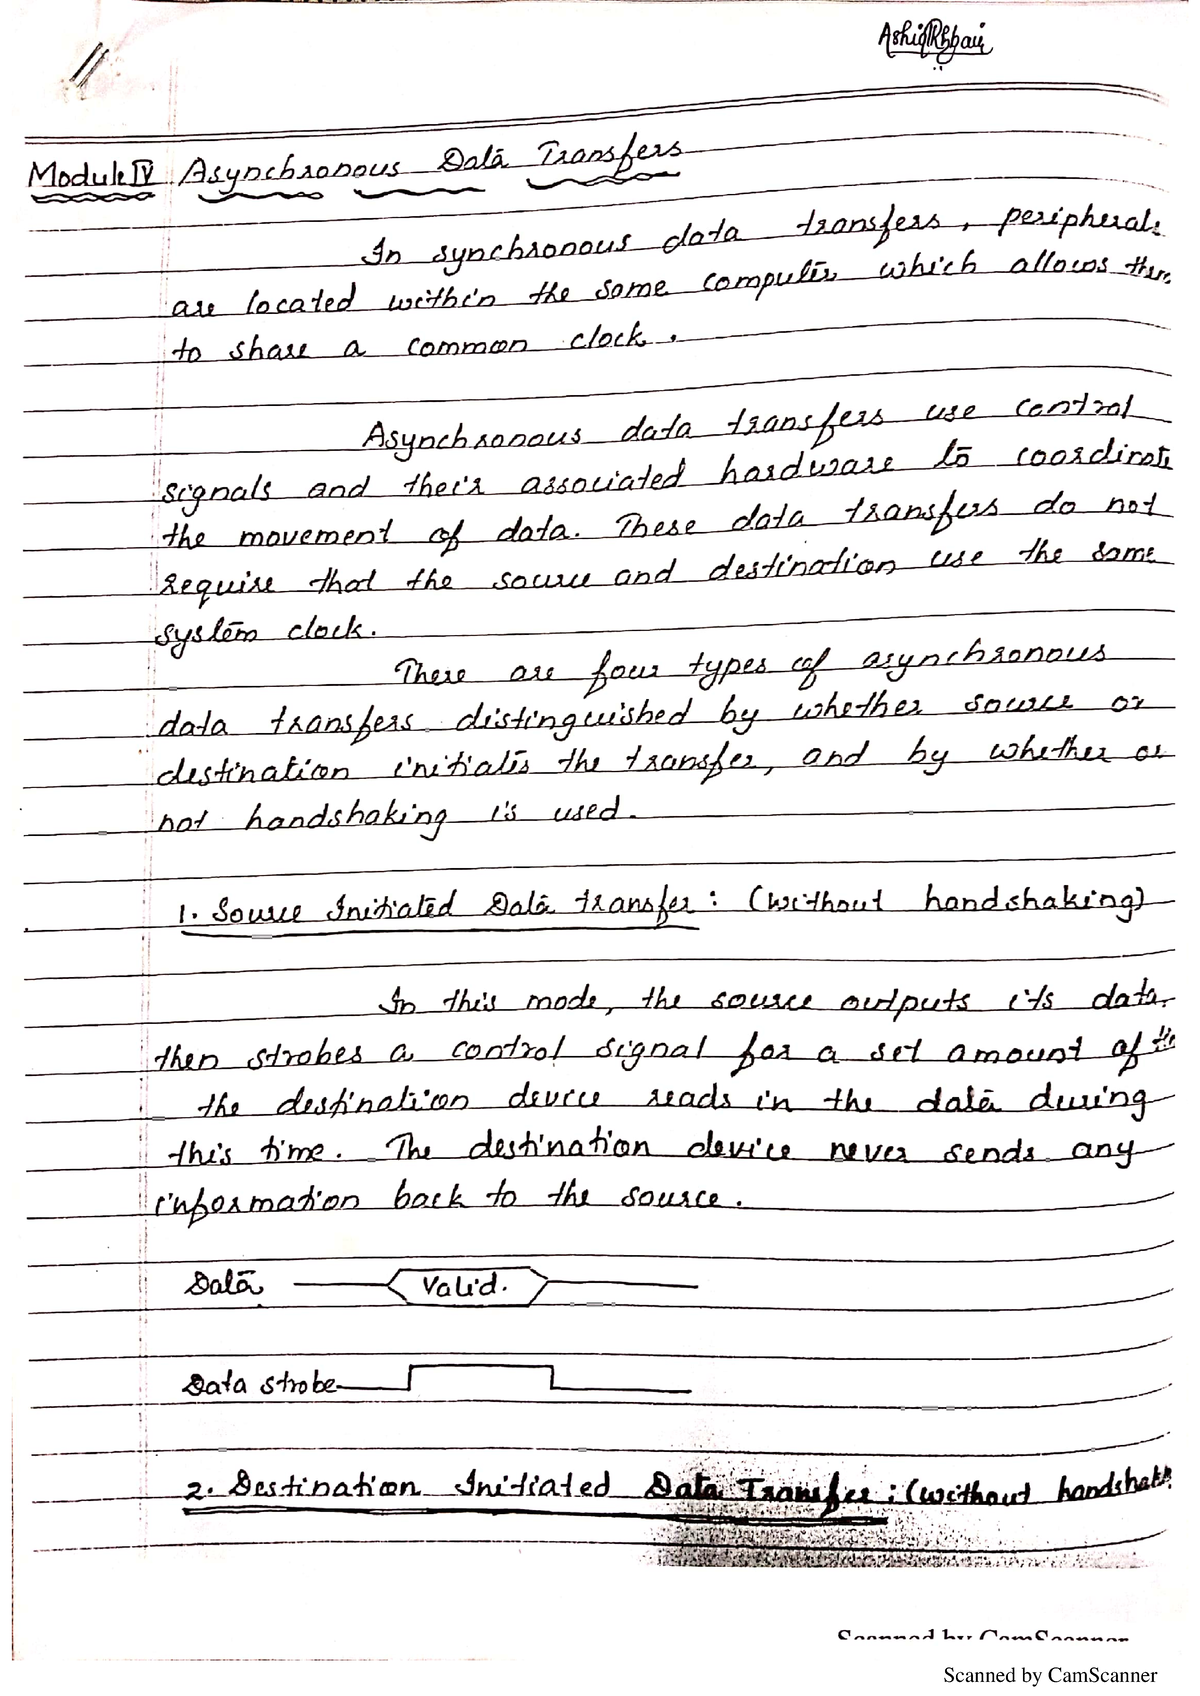 Module IV Asynchronous Data Transfers
In synchronous data transfers, peripherals
are located within the same computer which allows them
to share a common clock.
Asynchronous data transfers use control
signals and their associated hardware to coordinate
the movement of data. These data transfers do not
require that the source and destination use the same
system clock.
There are four types of asynchronous
data transfers distinguished by whether source or
destination initiates the transfer, and by whether or
not handshaking is used.
1. Source Initiated Data transfer : (without handshaking)
In this mode, the source outputs its data,
then strobes a control signal for a set amount of
the destination device reads in the data during
this time. The destination device never sends any
information back to the source.
Data Valid.
Data strobe
2. Destination Initiated Data Transfer : (without handshak
Scanned by CamScanner
Scanned by CamScanner